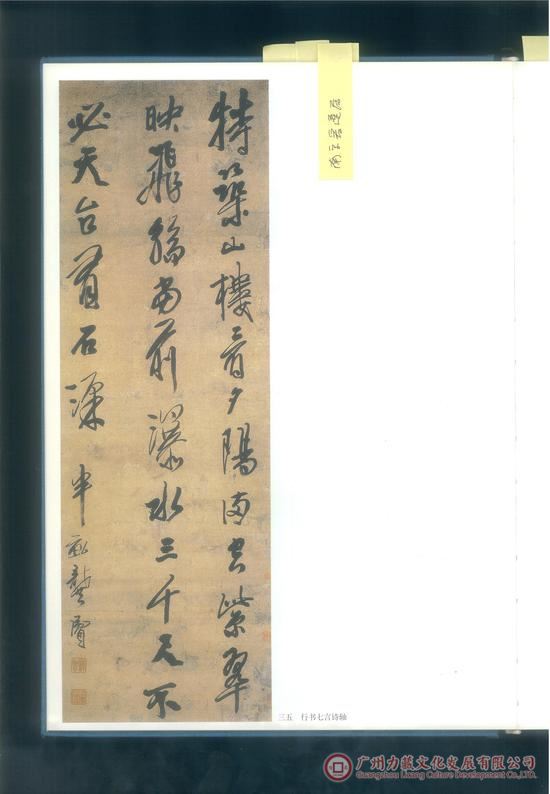 特築山樓看夕陽滿空紫翠
映飛觴當前瀑水三千尺不
必天台看石梁 半畝龔賢
三五 行书七言诗轴
广州力藏文化发展有限公司
Guangzhou Licang Culture Development Co.,Ltd